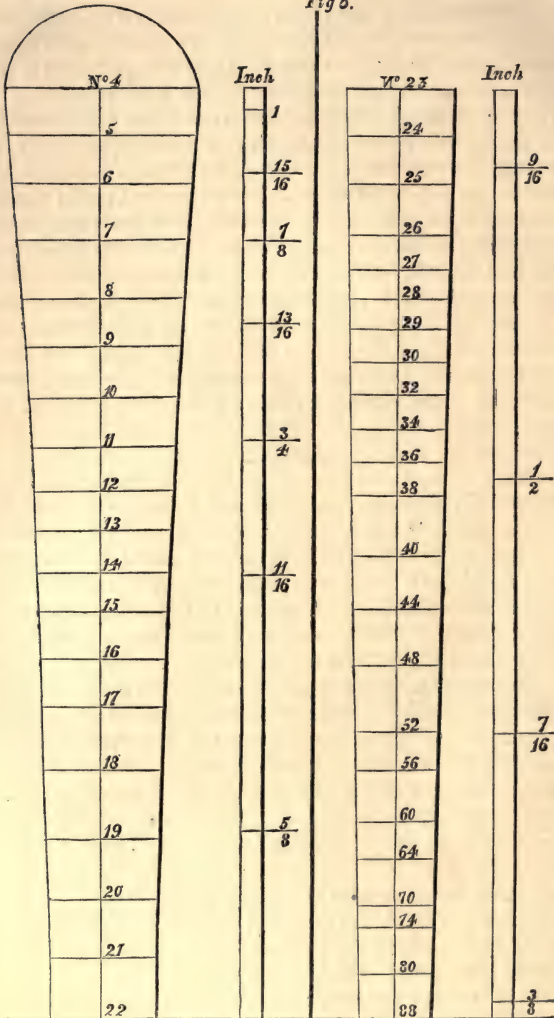 Fig 6.
Nº 4
5
6
7
8
9
10
11
12
13
14
15
16
17
18
19
20
21
22
Inch
1
15/16
7/8
13/16
3/4
11/16
5/8
Nº 23
24
25
26
27
28
29
30
32
34
36
38
40
44
48
52
56
60
64
70
74
80
88
Inch
9/16
1/2
7/16
3/8